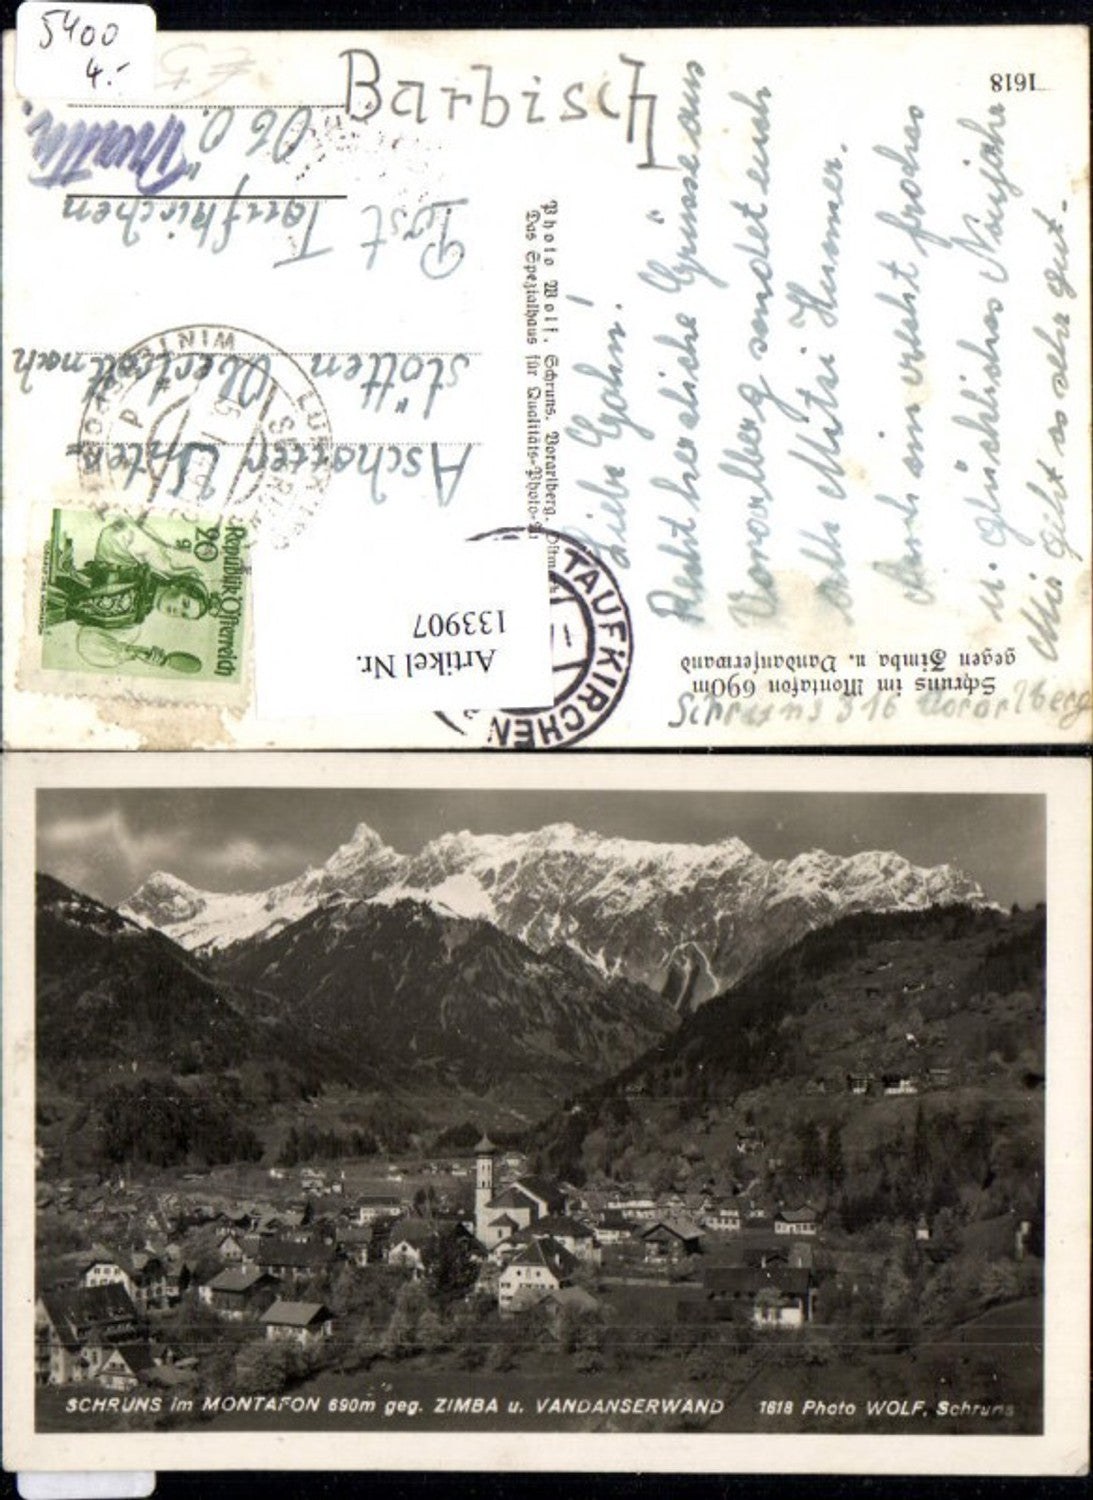 5400
4.-
Barbisch
1618
Post Taufkirchen
Ob Ö.
Aschotten Unter-
Photo Wolf, Schruns, Vorarlberg,
Das Spezialhaus für Qualitäts-Photo-
Republik Österreich
20 g
LUFT
SCHRUNS
WINTERSPORT
TAUFKIRCHEN
Artikel Nr.
133907
Liebe
Recht herzliche Grüsse aus
Vorarlberg sendet euch
Auch ein recht frohes
u. glückliches Neujahr
Mir geht es sehr gut.
Schruns im Montafon 690m
gegen Zimba u. Vandanserwand
Schruns 316 Vorarlberg
SCHRUNS im MONTAFON 690m geg. ZIMBA u. VANDANSERWAND 1618 Photo WOLF, Schruns